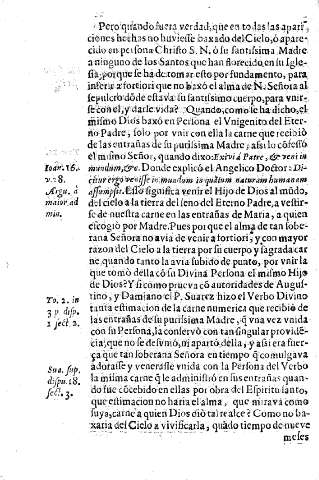 Pero quando fuera verdad, que en todas las apari-
ciones hechas no huviesse baxado del Cielo, ó apare-
cido en persona Christo S. N. ó su santissima Madre
a ninguno de los Santos que han florecido, en su Igle-
sia, por que se ha de tomar esto por fundamento, para
inferir á fortiori que no baxó el alma de N. Señora al
sepulcro dóde estava su santissimo cuerpo, para vnir-
se con el, y darle vida? Quando, como se ha dicho, el
mismo Dios baxó en Persona el Vnigenito del Eter-
no Padre, solo por vnir con ella la carne que recibió
de las entrañas de su purissima Madre; assi lo cófessó
el mismo Señor, quando dixo: Exivi á Patre, & veni in
mundum, &c. Donde explicó el Angelico Doctor: Di-
citur ergo venisse in mundum in quátum naturam humanam
assumpsit. Esto significa venir el Hijo de Dios al múdo,
del cielo a la tierra del seno del Eterno Padre, a vestir-
se de nuestra carne en las entrañas de Maria, a quien
escogió por Madre. Pues por que el alma de tan sobe-
rana Señora no avia de venir a fortiori, y con mayor
razon del Cielo a la tierra por su cuerpo y sagrada car
ne, quando tanto la avia subido de punto, por vnir la
que tomó della có su Divina Persona el mismo Hijo
de Dios? Y si como prueva có autoridades de Augus-
tino, y Damiano el P. Suarez hizo el Verbo Divino
tanta estimacion de la carne numerica que recibió de
las entrañas de su purissima Madre, q̃ vna vez vnida
con su Persona, la conservó con tan singular providé-
cia, que no se desvnió, ni apartó, della, y assi era fuer-
ça que tan soberana Señora en tiempo q̃ comulgava
adorasse y venerasse vnida con la Persona del Verbo
la misma carne q̃ le administró en sus entrañas quan-
do fue cócebido en ellas por obra del Espiritu santo,
que estimacion no haria el alma, que mirava como
suya, carne a quien Dios dió tal realce? Como no ba-
xaria del Cielo a vivificarla, quádo tiempo de nueve
meses
Ioan. 16.
v. 28.
Argu. á
maior. ad
min.
To. 2. in
3 p. disp.
1 sect. 2.
Sua. sup.
dispu. 18.
sect. 3.